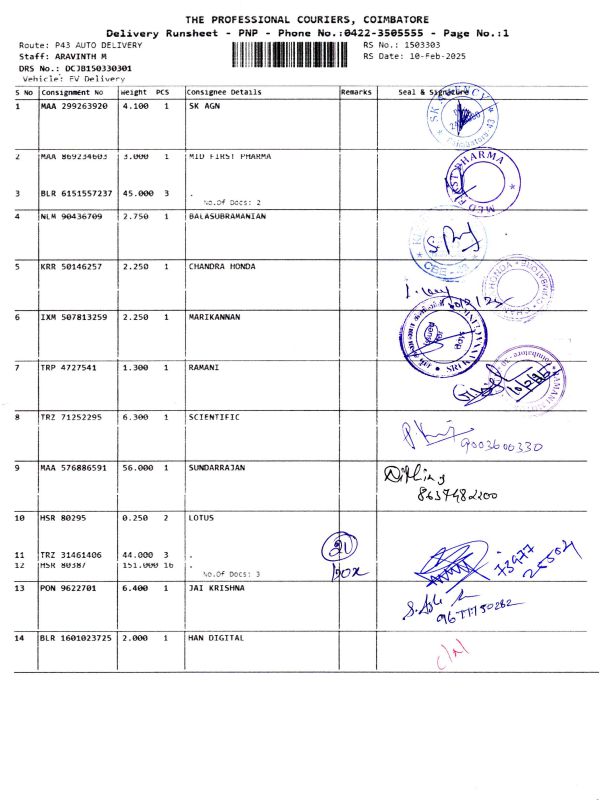 THE PROFESSIONAL COURIERS, COIMBATORE
Delivery Runsheet - PNP - Phone No.:0422-3505555 - Page No.:1
Route: P43 AUTO DELIVERY RS No.: 1503303
Staff: ARAVINTH M RS Date: 10-Feb-2025
DRS No.: DCJB150330301
Vehicle: EV Delivery
S No Consignment No Weight PCS Consignee Details Remarks Seal & Signature
1 MAA 299263920 4.100 1 SK AGN
2 MAA 869234603 3.000 1 MID FIRST PHARMA
MED FIRST PHARMA
3 BLR 6151557237 45.000 3 .
No.Of Docs: 2
4 NLM 90436709 2.750 1 BALASUBRAMANIAN
CBE - 43
5 KRR 50146257 2.250 1 CHANDRA HONDA
6 IXM 507813259 2.250 1 MARIKANNAN
7 TRP 4727541 1.300 1 RAMANI
8 TRZ 71252295 6.300 1 SCIENTIFIC
9003600330
9 MAA 576886591 56.000 1 SUNDARRAJAN
8637482200
10 HSR 80295 0.250 2 LOTUS
20
box
11 TRZ 31461406 44.000 3 .
12 HSR 80387 151.000 16 .
No.Of Docs: 3
73977
25504
13 PON 9622701 6.400 1 JAI KRISHNA
14 BLR 1601023725 2.000 1 HAN DIGITAL